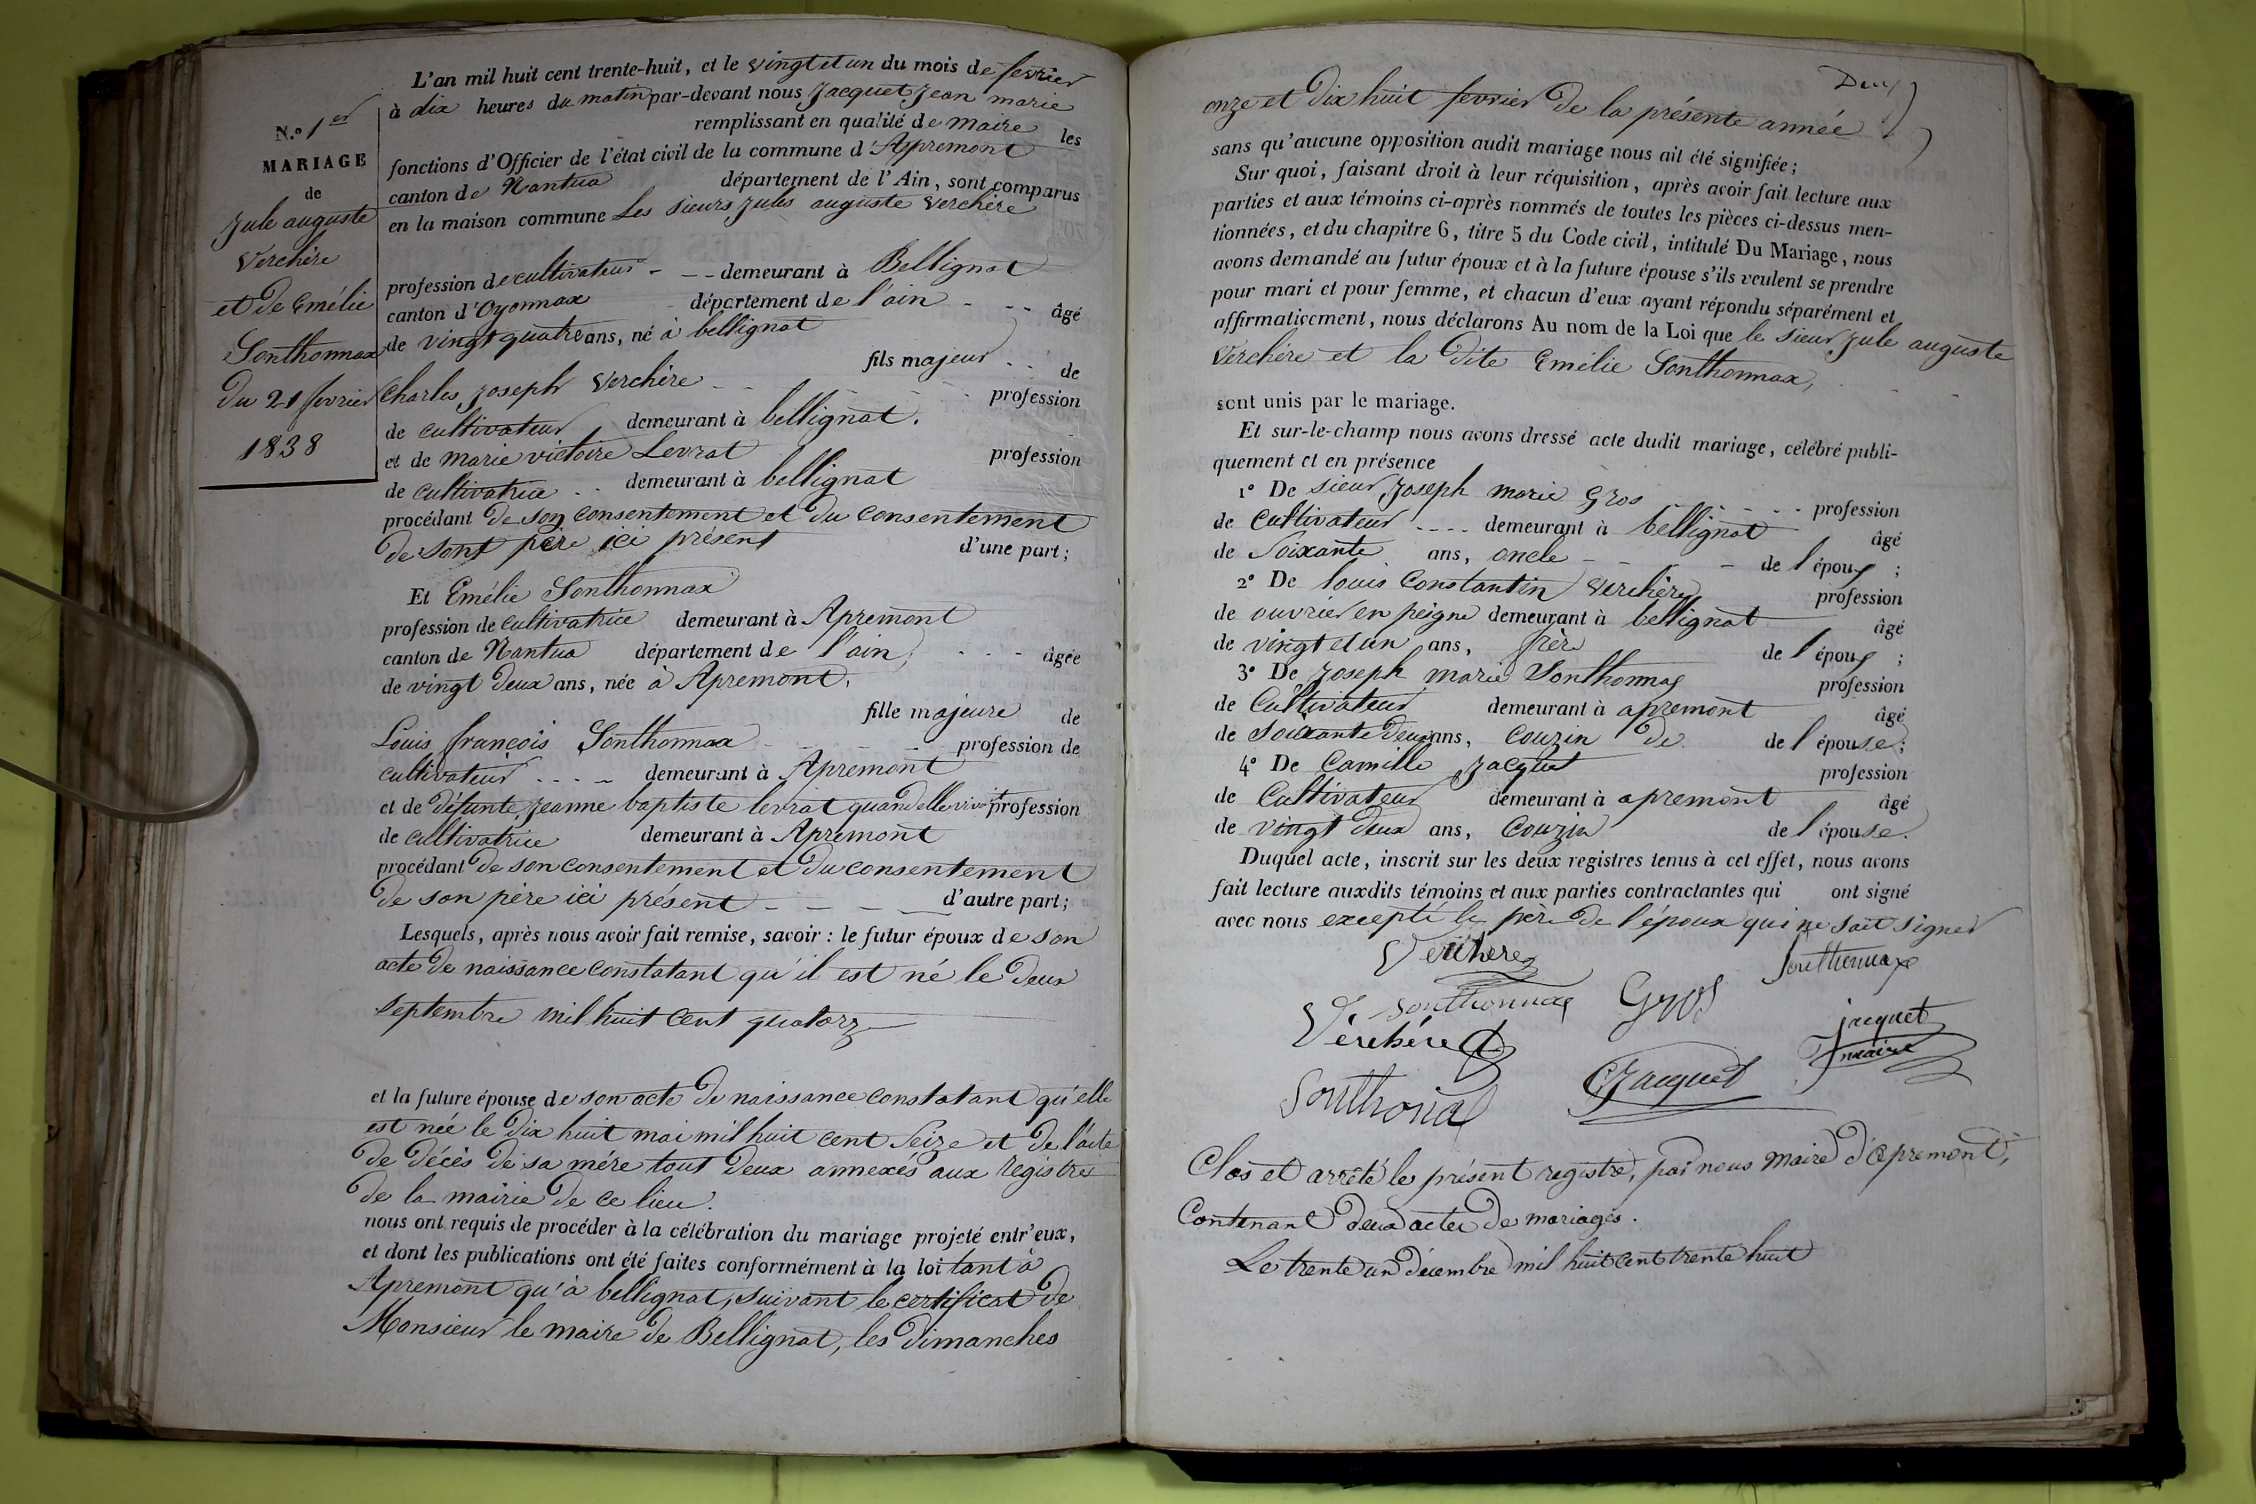 N.º 1er
MARIAGE
de
Jule auguste
Verchère
et de Emélie
Sonthonnax
du 21 fevrier
1838
L'an mil huit cent trente-huit, et le vingt et un du mois de fevrier
à dix heures du matin par-devant nous Jacquet Jean marie
remplissant en qualité de maire les
fonctions d'Officier de l'état civil de la commune d'Apremont
canton de Nantua département de l'Ain, sont comparus
en la maison commune Les sieurs Jules auguste Verchère
profession de cultivateur - - - demeurant à Bellignat
canton d'Oyonnax département de l'ain - - - âgé
de vingt quatre ans, né à bellignat
fils majeur - - de
Charles Joseph Verchère - - profession
de cultivateur demeurant à bellignat.
et de marie victoire Levrat profession
de cultivatrice - - demeurant à bellignat
procédant de son consentement et du consentement
de sont père ici présent d'une part;
Et Emélie Sonthonnax
profession de cultivatrice demeurant à Apremont
canton de Nantua département de l'ain, - - - âgée
de vingt deux ans, née à Apremont.
fille majeure de
Louis françois Sonthonnax - - - - profession de
cultivateur - - - - demeurant à Apremont
et de défunte Jeanne baptiste levrat quand elle vivot profession
de cultivatrice demeurant à Apremont
procédant de son consentement et du consentement
de son père ici présent - - - - d'autre part;
Lesquels, après nous avoir fait remise, savoir : le futur époux de son
acte de naissance constatant qu'il est né le deux
septembre mil huit cent quatorze
et la future épouse de son acte de naissance constatant qu'elle
est née le dix huit mai mil huit cent seize et de l'acte
de décès de sa mére tout deux annexés aux registres
de la mairie de ce lieu.
nous ont requis de procéder à la célébration du mariage projeté entr'eux,
et dont les publications ont été faites conformément à la loi tant à
Apremont qu'à bellignat, suivant le certificat de
Monsieur le maire de Bellignat, les dimanches
Deux
onze et dix huit fevrier de la présente année
sans qu'aucune opposition audit mariage nous ait été signifiée;
Sur quoi, faisant droit à leur réquisition, après avoir fait lecture aux
parties et aux témoins ci-après nommés de toutes les pièces ci-dessus men-
tionnées, et du chapitre 6, titre 5 du Code civil, intitulé Du Mariage, nous
avons demandé au futur époux et à la future épouse s'ils veulent se prendre
pour mari et pour femme, et chacun d'eux ayant répondu séparément et
affirmativement, nous déclarons Au nom de la Loi que le sieur Jule auguste
Verchére et la dite Emélie Sonthonnax,
sont unis par le mariage.
Et sur-le-champ nous avons dressé acte dudit mariage, célébré publi-
quement et en présence
1º De sieur Joseph marie Gros - - - - profession
de Cultivateur - - - - demeurant à bellignat âgé
de Soixante ans, oncle - - - de l'époux ;
2º De louis Constantin Verchère profession
de ouvrier en peigne demeurant à bellignat âgé
de vingt et un ans, frère de l'époux ;
3º De Joseph marie Sonthonnax profession
de Cultivateur demeurant à apremont âgé
de soixante deux ans, couzin de de l'épouse;
4º De Camille Jacquet profession
de Cultivateur demeurant à apremont âgé
de vingt deux ans, couzin de l'épouse.
Duquel acte, inscrit sur les deux registres tenus à cet effet, nous avons
fait lecture auxdits témoins et aux parties contractantes qui ont signé
avec nous excepté le père de l'époux qui ne sait signer
Verchere Sonthonnax
Sonthonnax Gros
Verchére jacquet
maire
Sonthona CJacquet
Clos et arrêté le présent registre, par nous maire d'apremont,
Contenant deux actes de mariages.
Le trente un décembre mil huit cent trente huit